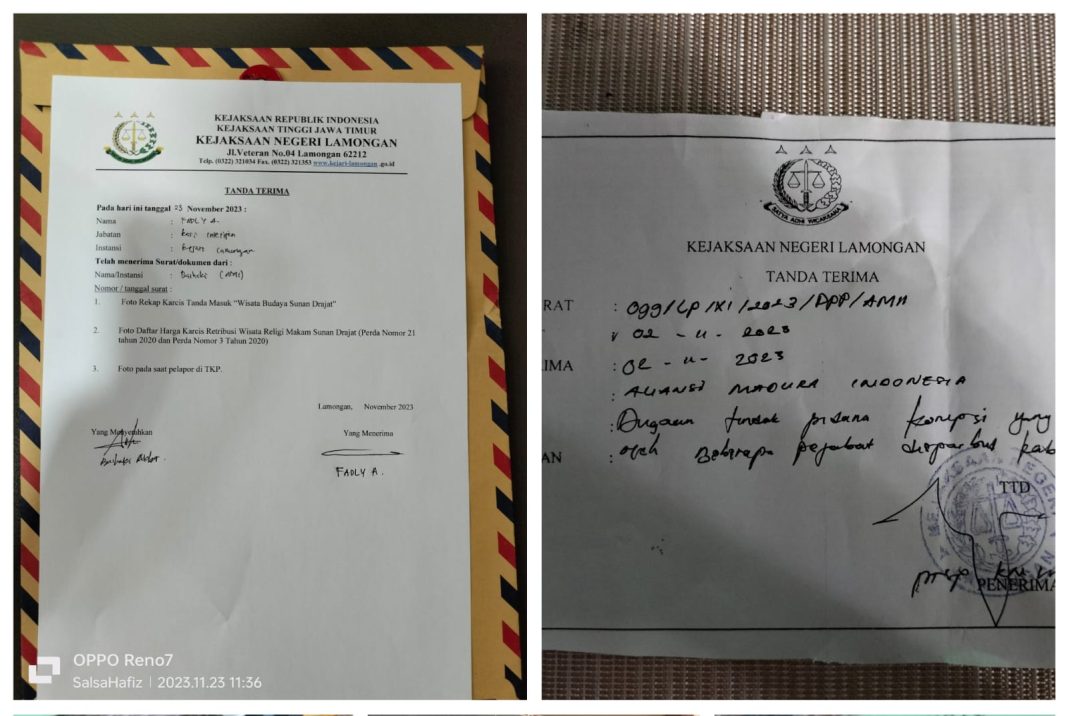 KEJAKSAAN REPUBLIK INDONESIA
KEJAKSAAN TINGGI JAWA TIMUR
KEJAKSAAN NEGERI LAMONGAN
Jl.Veteran No.04 Lamongan 62212
Telp. (0322) 321034 Fax. (0322) 321353 www.kejari-lamongan .go.id
TANDA TERIMA
Pada hari ini tanggal 23 November 2023 :
Nama : FADLY A.
Jabatan : Kasi Intelijen
Instansi : Kejari Lamongan
Telah menerima Surat/dokumen dari :
Nama/Instansi : (AMI)
Nomor / tanggal surat :
1. Foto Rekap Karcis Tanda Masuk "Wisata Budaya Sunan Drajat"
2. Foto Daftar Harga Karcis Retribusi Wisata Religi Makam Sunan Drajat (Perda Nomor 21
tahun 2020 dan Perda Nomor 3 Tahun 2020)
3. Foto pada saat pelapor di TKP.
Lamongan, November 2023
Yang Menyerahkan
Yang Menerima
FADLY A.
OPPO Reno7
SalsaHafiz | 2023.11.23 11:36
SATYA ADHI WICAKSANA
KEJAKSAAN NEGERI LAMONGAN
TANDA TERIMA
RAT : 099/LP/XI/2023/DPP/AMI
: 02 - 11 - 2023
IMA : 02 - 11 - 2023
: ALIANSI MADURA INDONESIA
: Dugaan tindak pidana korupsi yang
AN : oleh Beberapa pejabat disparbud kab
TTD
PENERIMA